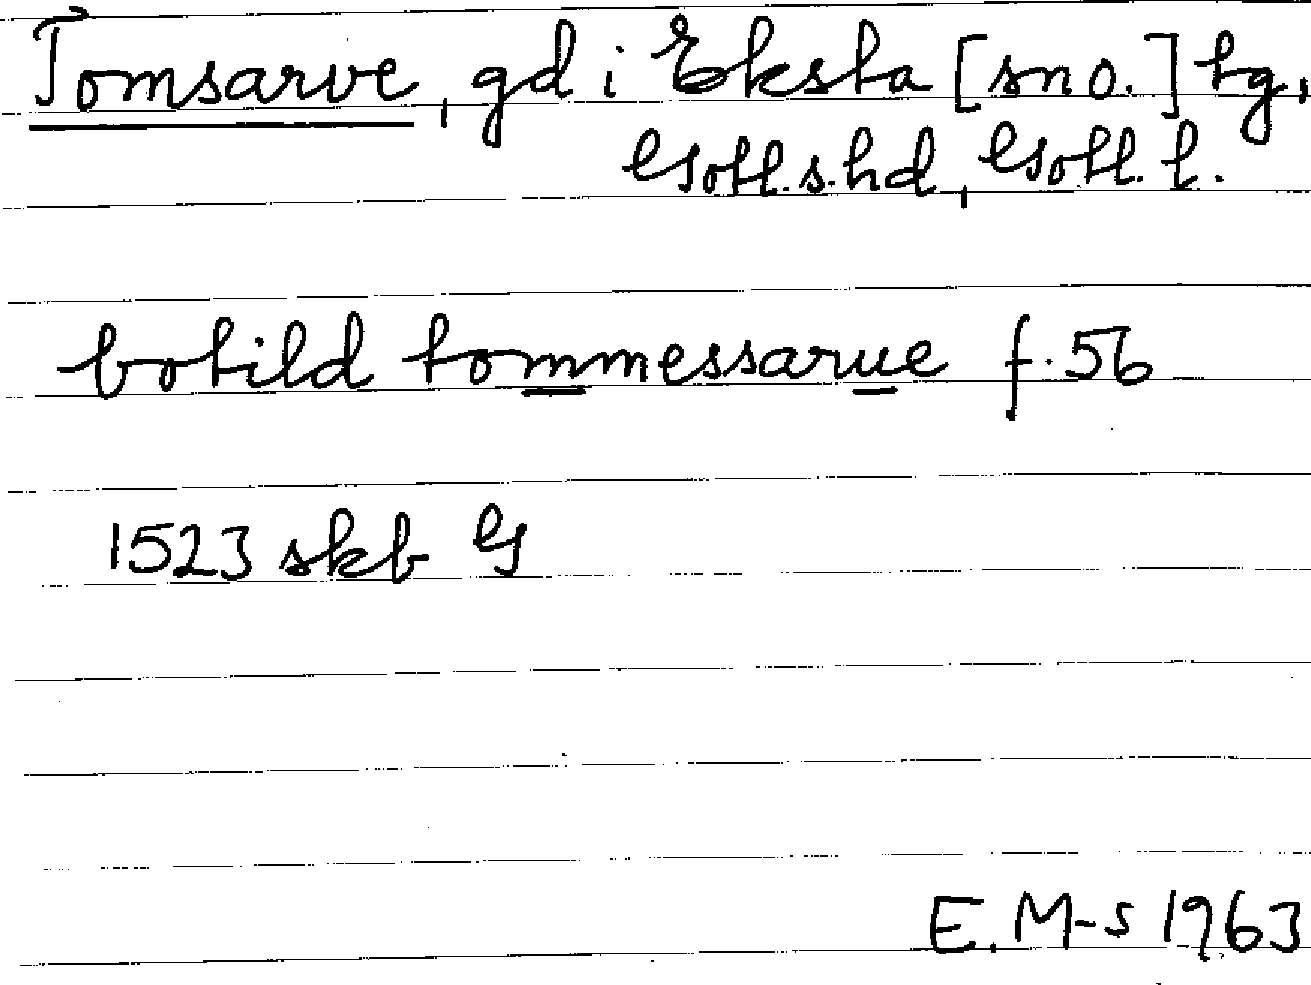 Tomsarve, gd i Eksta [sno.] tg,
Gotl. s. hd, Gotl. l.
botild tommessarue f. 56
1523 skb G
E. M-s 1963